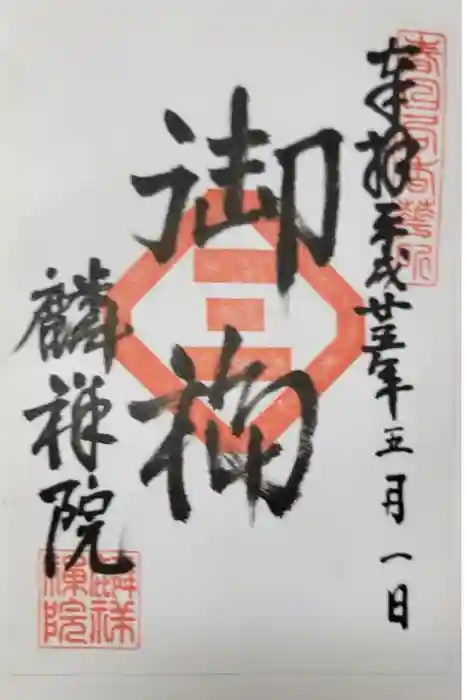 奉拝 平成廿五年五月一日
御
三
麟祥院
麟祥禅院